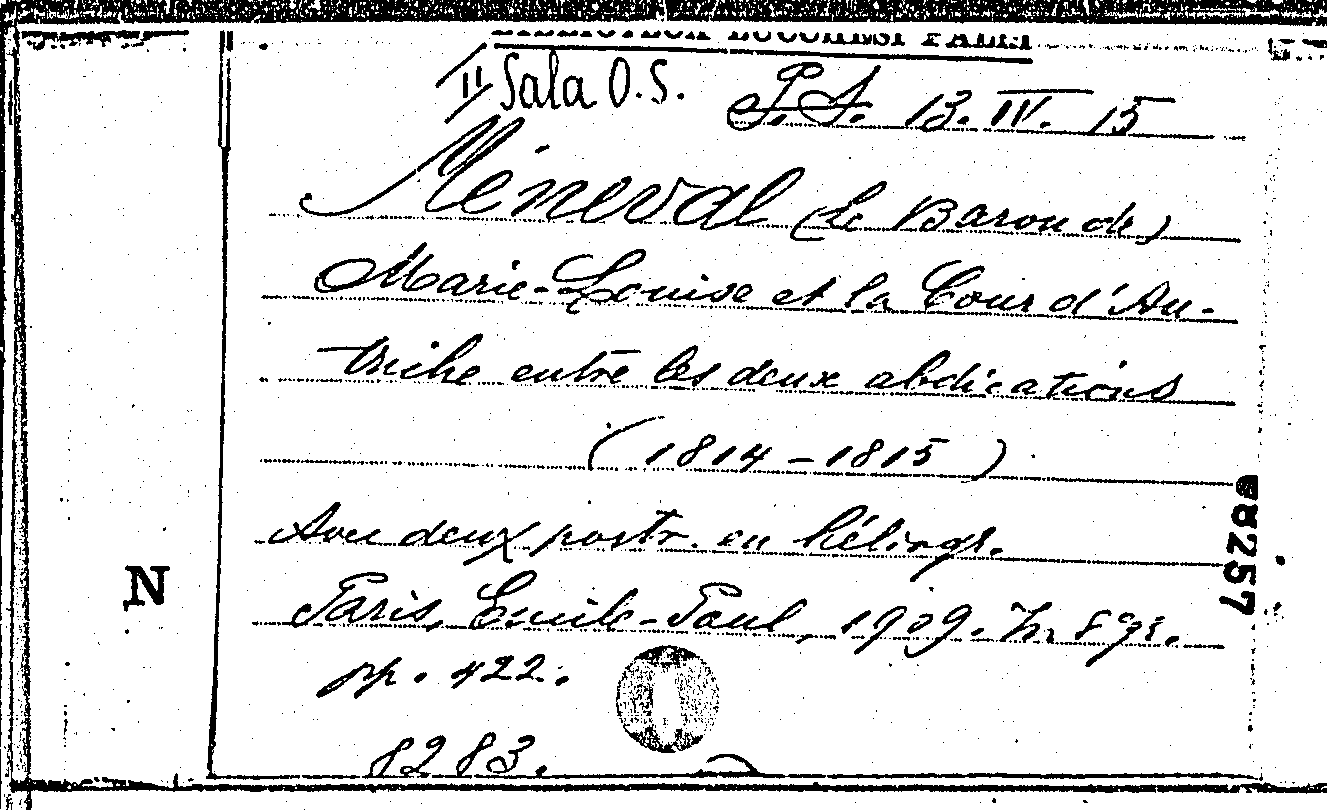 BIBLIOTECA LUCCHESI PALLI
II Sala O.S. P.S. 13. IV. 15
Méneval (Le Baron de)
Marie-Louise et la Cour d'Au-
triche entre les deux abdications
(1814-1815)
Avec deux portr. en héliogr.
Paris, Emile-Paul, 1909. In 8 gr.
pp. 422.
8283.
N
88257